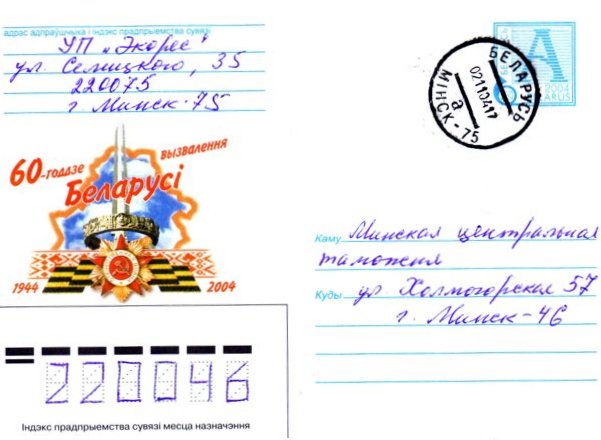 адрас адпраўшчыка і індэкс прадпрыемства сувязі
УП „Экорес"
ул. Селицкого, 35
220075
г Минск-75
А
2004
BELARUS
БЕЛАРУСЬ
02110417
а
МІНСК-75
60-годдзе вызвалення
Беларусі
1944 2004
Каму Минская центральная
таможня
Куды ул. Холмогорская 57
г. Минск-46
220046
Індэкс прадпрыемства сувязі месца назначэння